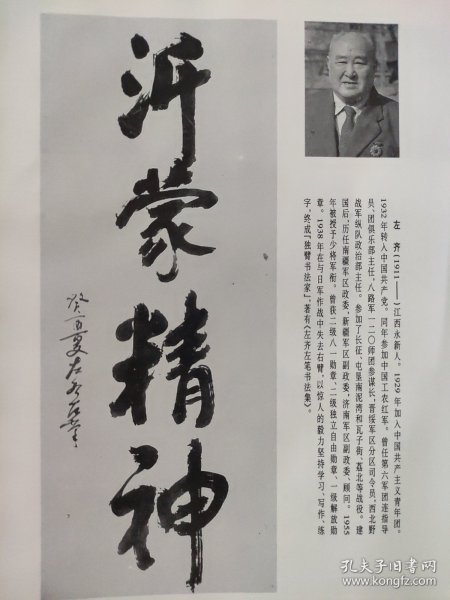 左 齐(1911——)江西永新人。1929年加入中国共产主义青年团。
1932年转入中国共产党。同年参加中国工农红军。曾任第六军团连指导
员、团俱乐部主任,八路军一二〇师团参谋长,晋绥军区分区司令员,西北野
战军纵队政治部主任。参加了长征、屯垦南泥湾和瓦子街、荔北等战役。建
国后,历任南疆军区政委、新疆军区副政委、济南军区副政委、顾问。1955
年被授予少将军衔。曾获二级八一勋章、二级独立自由勋章、一级解放勋
章。1938年在与日军作战中失去右臂,以惊人的毅力坚持学习、写作、练
字,终成「独臂书法家」,著有《左齐左笔书法集》。
沂蒙精神
癸酉夏左齐左笔
孔夫子旧书网
www.kongfz.com